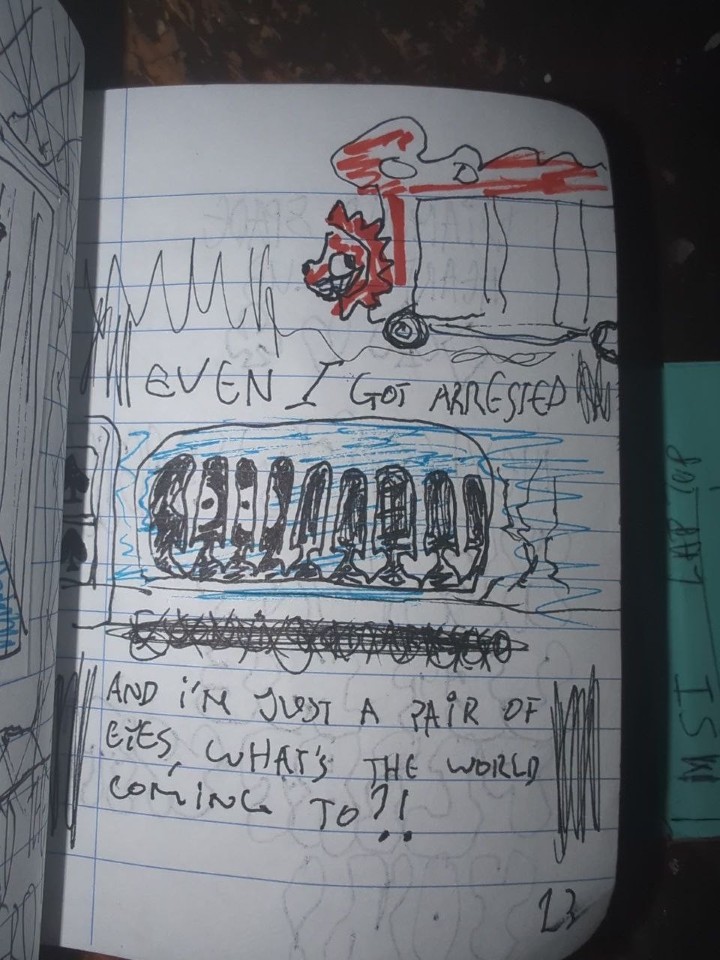 EVEN I GOT ARRESTED
AND i'M JUST A PAiR OF
EYES, WHAT'S THE WORLD
COMiNG TO?!
23
MSI LAPTOP